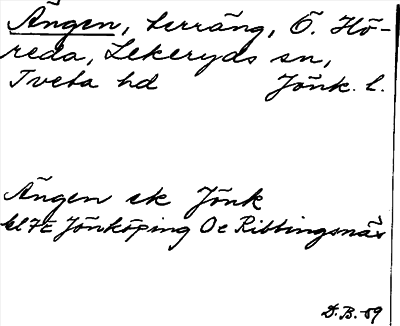 Ängen, terräng, Ö. Hö-
reda, Lekeryds sn,
Tveta hd Jönk. l.
Ängen ek Jönk
bl 7E Jönköping Oc Ribbingsnäs
D.B.-59